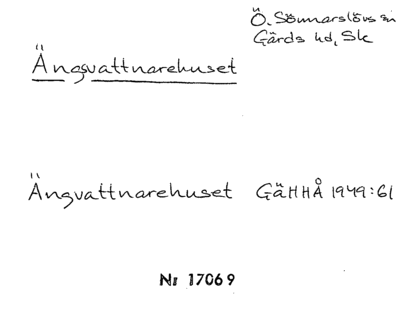 Ö. Sönnarslövs sn
Gärds hd, Sk
Ängsvattnarehuset
Ängvattnarehuset GäHHÅ 1949:61
Nr 17069